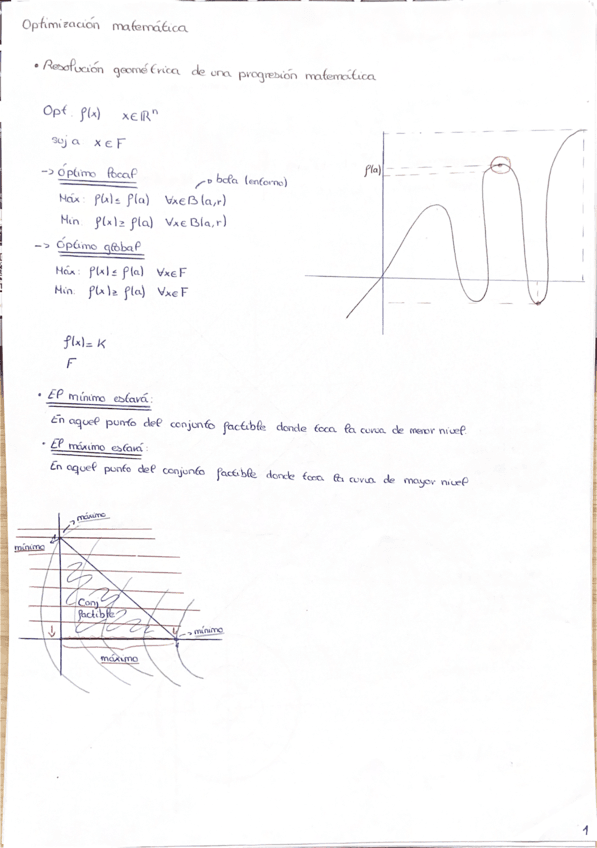 Optimización matemática
• Resolución geométrica de una progresión matemática
Opt. f(x) x∈ℝⁿ
suj a x∈F
-> Óptimo local
bola (entorno)
Máx: f(x)≤ f(a) ∀x∈B(a,r)
Min. f(x)≥ f(a) ∀x∈B(a,r)
--> Óptimo global
Máx: f(x)≤ f(a) ∀x∈F
Min. f(x)≥ f(a) ∀x∈F
f(a)
f(x)= K
F
• El mínimo estará:
En aquel punto del conjunto factible donde toca la curva de menor nivel.
• El máximo estará:
En aquel punto del conjunto factible donde toca la curva de mayor nivel
máximo
mínimo
Conj
factible
mínimo
máximo
1